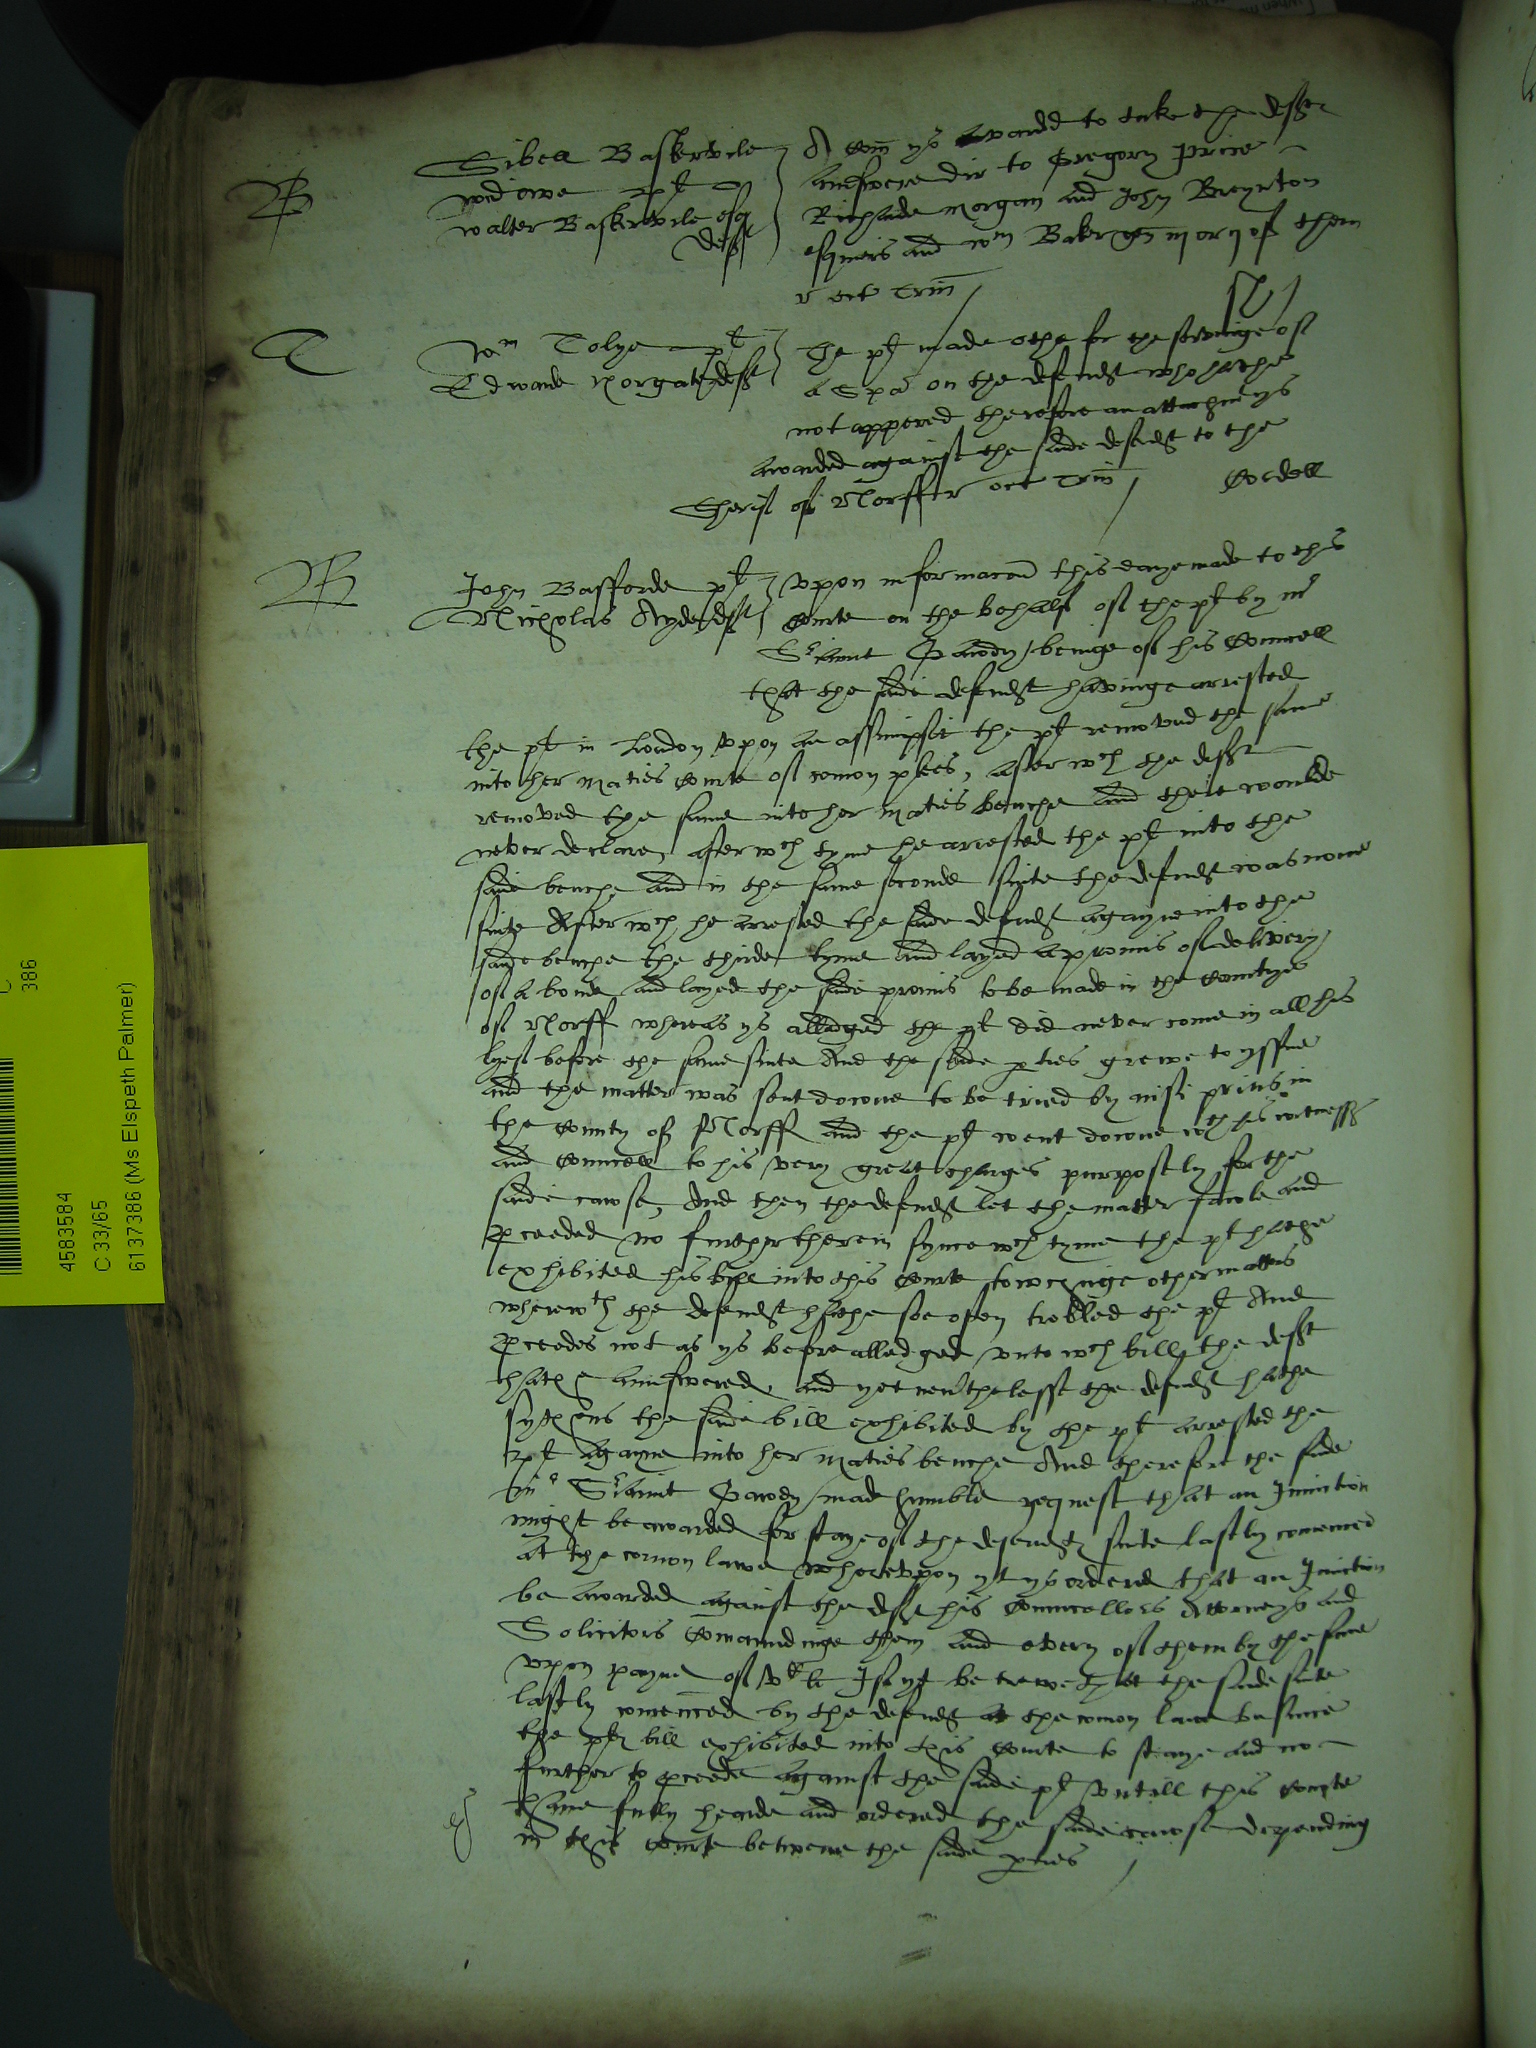 B
Sibell Baskervile
widowe plt
Walter Baskervile esq
deft
A Com ys awarded to take the deftes
aunswere dir to Gregory Price
Richarde Morgan and John Breynton
esquiers and Wm Baker gen iij or ij of them
r oct Trin
T
Wm Tolye plt
Edwarde Norgate deft
The plt made othe for the servinge of
a Spa on the defendt who hathe
not appered therefore an attachmt ys
awarded against the saide defendt to the
Sherif of Norff r oct Trin
Cordell
B
John Bafforde plt
Nicholas Ryder deft
Upon informacon this daye made to this
Courte on the behalf of the plt by mr
Sriaunt Gawdy beinge of his Councell
that the saide defendt havinge arrested
the plt in London upon an assumpsit the plt removed the same
into her Maties Courte of comon plees, after wch the deft
removed the same into her Maties benche and there woulde
never declare, after wch tyme he arrested the plt into the
saide benche and in the same seconde suite the defendt was none
suite After wch he arrested the saide defendt agayne into the
saide benche the thirde tyme and layed a promis of delivery
of a bonde and layed the saide promis to be made in the Countye
of Norff whereas ys alledged the plt did never come in all his
lyef before the same suite And the saide pties grewe to yssue
and the matter was sent downe to be tried by nisi prius in
the County of Norff and the plt went downe wth his witnesses
and Councell to his very great charges purposely for the
saide cawse, And then the defendt let the matter fawle and
pceeded no further therein synce wch tyme the plt hathe
exhibited his bill into this Courte towchinge other matters
wherewth the defendt hathe soe ofen trobled the plt And
pceedes not as ys before alledged unto wch bill the deft
hathe aunswered, and yet nevertheless the defendt hathe
sythens the saide bill exhibited by the plt arrested the
plt agayne into her Maties benche And therefore the saide
Mr Sriaunt Gawdy made humble request that an Iniunction
might be awarded for staye of the defendtes suite lastly comenced
at the comon lawe whereupon yt ys ordered that an Iniunction
be awarded against the deft his Councellors Attorneys and
Solicitors Comaundinge them and every of them by the same
upon payne of vc li If yt be trewe that the saide suite
lastly comenced by the defendt at the comon lawe be since
the pltes bill exhibited into this Courte to staye and no
further to pceede against the saide plt untill this Courte
have fully hearde and ordered the saide cawse depending
in this Courte betweene the saide pties
4583584
C 33/65
6137386 (Ms Elspeth Palmer)
C
386